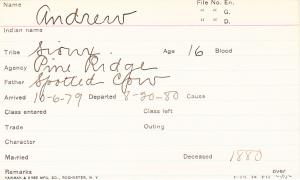 Name Andrew File No. En.
" " G.
" " D.
Indian name
Tribe Sioux. Age 16 Blood
Agency Pine Ridge
Father Spotted Cow
Arrived 10-6-79 Departed 8-20-80 Cause
Class entered Class left
Trade Outing
Character
Married Deceased 1880
Remarks over
YAWMAN & ERBE MFG. CO., ROCHESTER, N. Y.